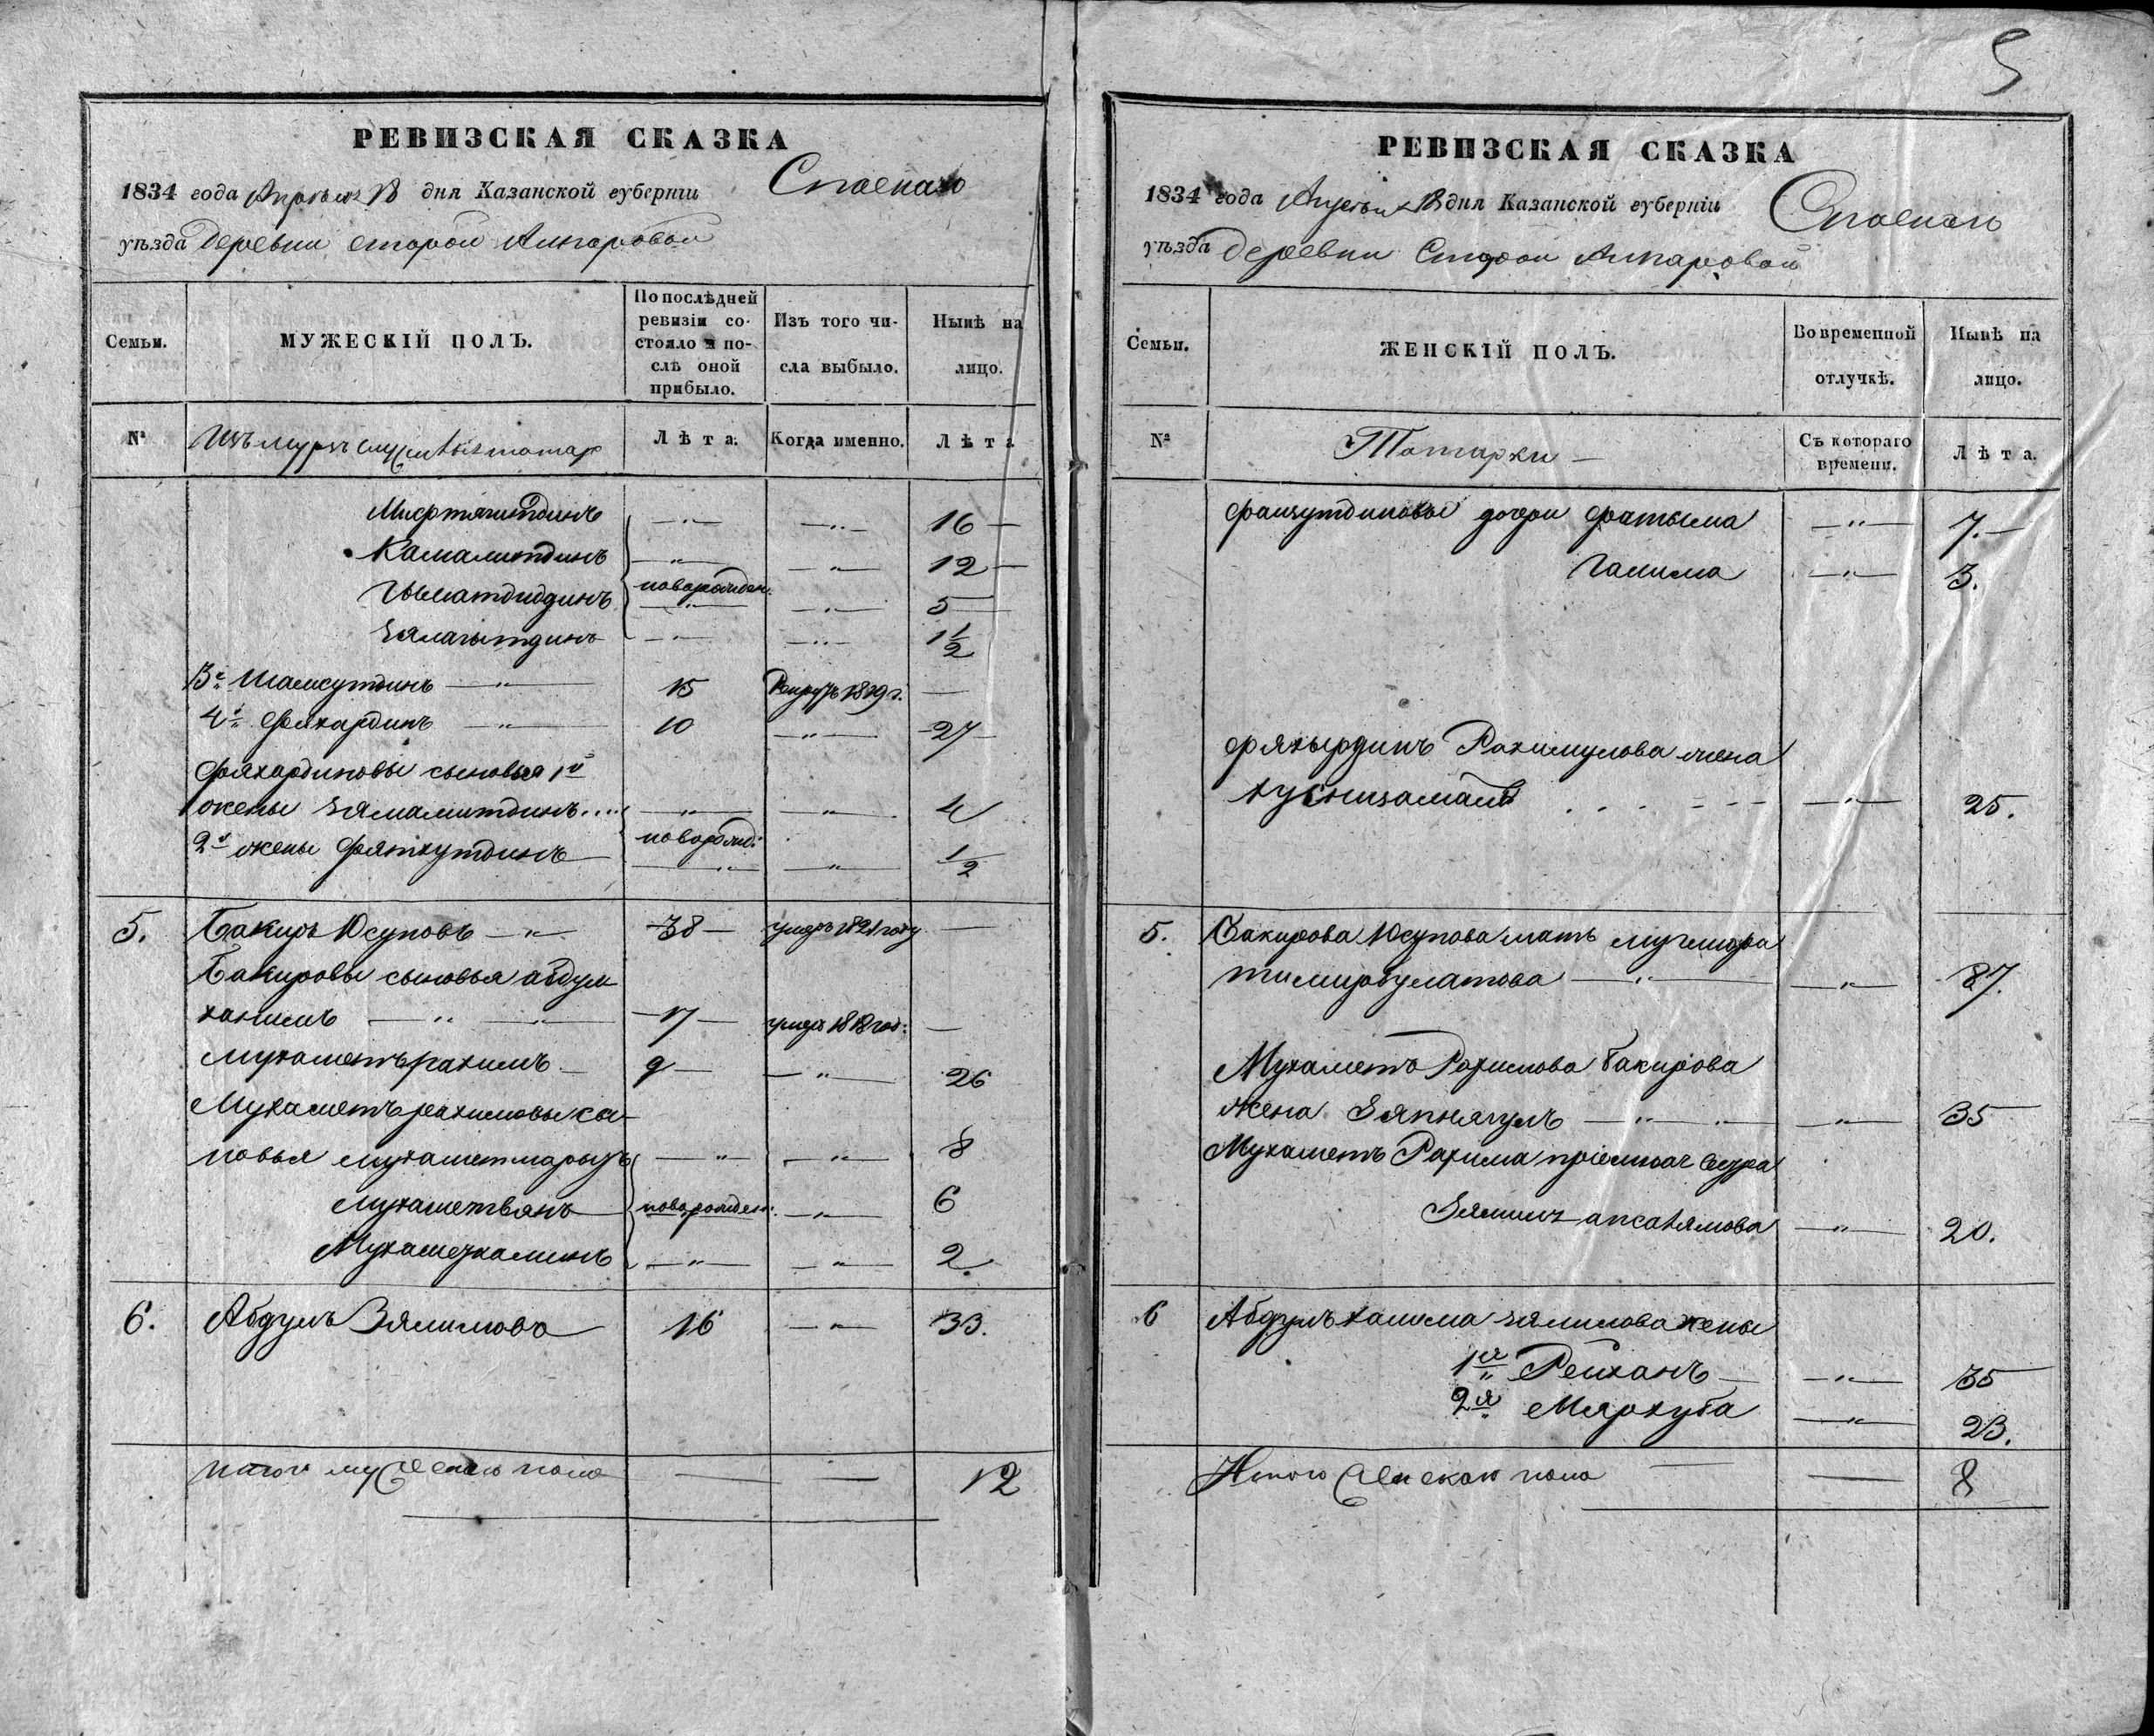 РЕВИЗСКАЯ СКАЗКА
1834 года Апреля 13 дня Казанской губерніи Спаскаго
уѣзда деревни старой Алпаровой
Семьи.
МУЖЕСКІЙ ПОЛЪ.
По послѣдней ревизіи состояло и послѣ оной прибыло.
Изъ того числа выбыло.
Нынѣ на лицо.
№
Изъ мурзъ служилыхъ татар
Лѣта.
Когда именно.
Лѣта
Мифтягитдинъ — „ — — „ — 16 —
Камалитдинъ — „ — — „ — 12 —
новорожден.
— „ — — „ — 5
Зялялытдинъ — „ — — „ — 1 1/2
3й Шамсутдинъ — „ — 15 Рекрутъ 1819 г. —
4й Фяхардинъ — „ — 10 — „ — 27 —
Фяхардиновы сыновья 1й
жены Зямалитдинъ.... — „ — — „ — 4
новорожд:
2й жены Фятхутдинъ — — „ — — „ — 1/2
5. Бакиръ Юсуповъ — „ — 38 — умеръ 1821 году —
Бакировы сыновья абдул
халимъ — „ — „ — 17 — умеръ 1818 год: —
Мухаметърахимъ — 9 — — „ — 26
Мухаметърахимовы сы-
новья мухаметшарыпъ — „ — — „ — 8
Мухаметзянъ новорожден: — „ — 6
Мухаметкалимъ — „ — — „ — 2.
6. Абдулъ Зялиловъ 16 — „ — 33.
Итого мужескаго пола — — 12
5
РЕВИЗСКАЯ СКАЗКА
1834 года Апреля 13 дня Казанской губерніи Спаскаго
уѣзда деревни Старой Алпаровой
Семьи.
ЖЕНСКІЙ ПОЛЪ.
Во временной отлучкѣ.
Нынѣ на лицо.
№
Татарки —
Съ котораго времени.
Лѣта.
Фаизутдиновы дочери Фатыма — „ — 7. —
Галима — „ — 3.
Фяхырдинъ Рахимулова жена
хуснизамалъ . . . — — — — „ — 25.
5. Бакирова Юсупова мать
тимирбулатова — „ — — „ — 87.
Мухаметъ Рахимова Бакирова
жена Зяпнягулъ — „ — „ — — „ — 35
Мухаметъ Рахима сестра
— „ — 20.
6 Абдулъ халима зялилова жены
1я Рейханъ — — „ — 35
2я Мярхуба — „ — 23.
Итого женскаго пола — — 8